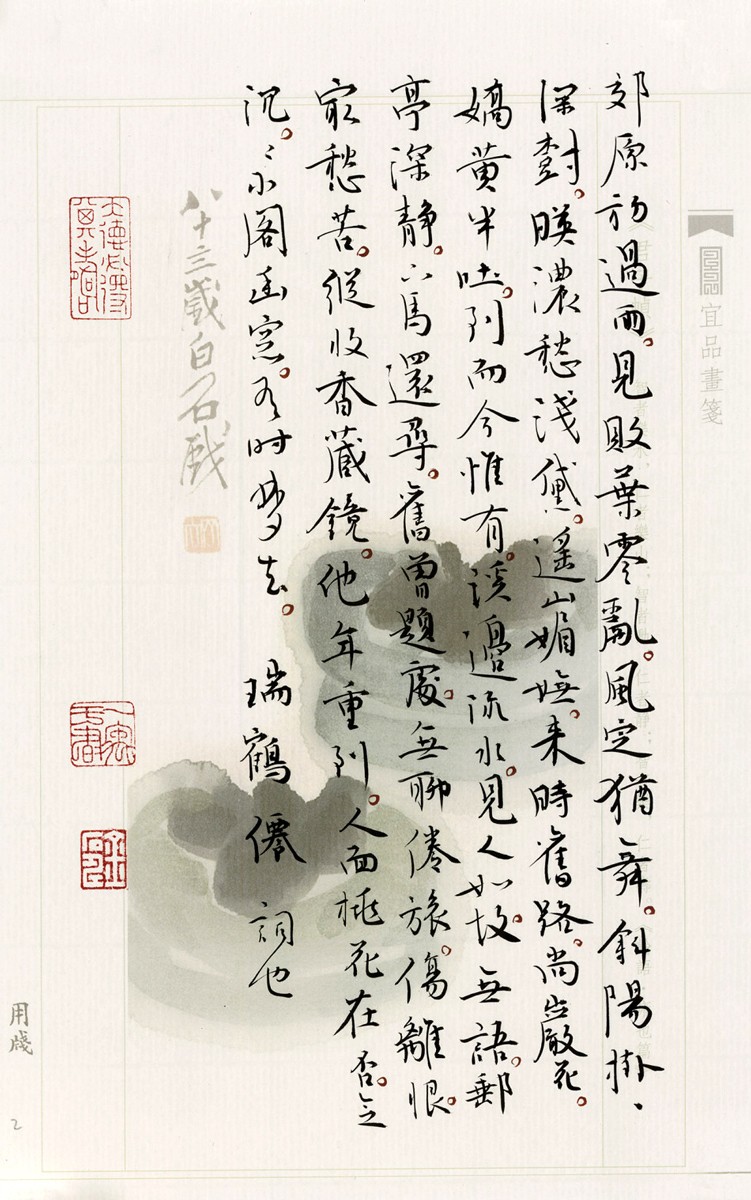 宜品畫箋
郊原初過雨。見敗葉零亂。風定猶舞。斜陽掛、
深樹。暎濃愁淺黛。遙山媚嫵。来時舊路。尚巖花。
嬌黃半吐。到而今惟有。溪邊流水。見人如故。無語。郵
亭深靜。下馬還尋。舊曾題處。無聊倦旅。傷離恨。
冣愁苦。縱收香藏鏡。他年重到。人面桃花在否。念
沉。〻小阁幽窓。有时梦去。 瑞鶴僊 詞也
八十三歲白石戲
用牋
2